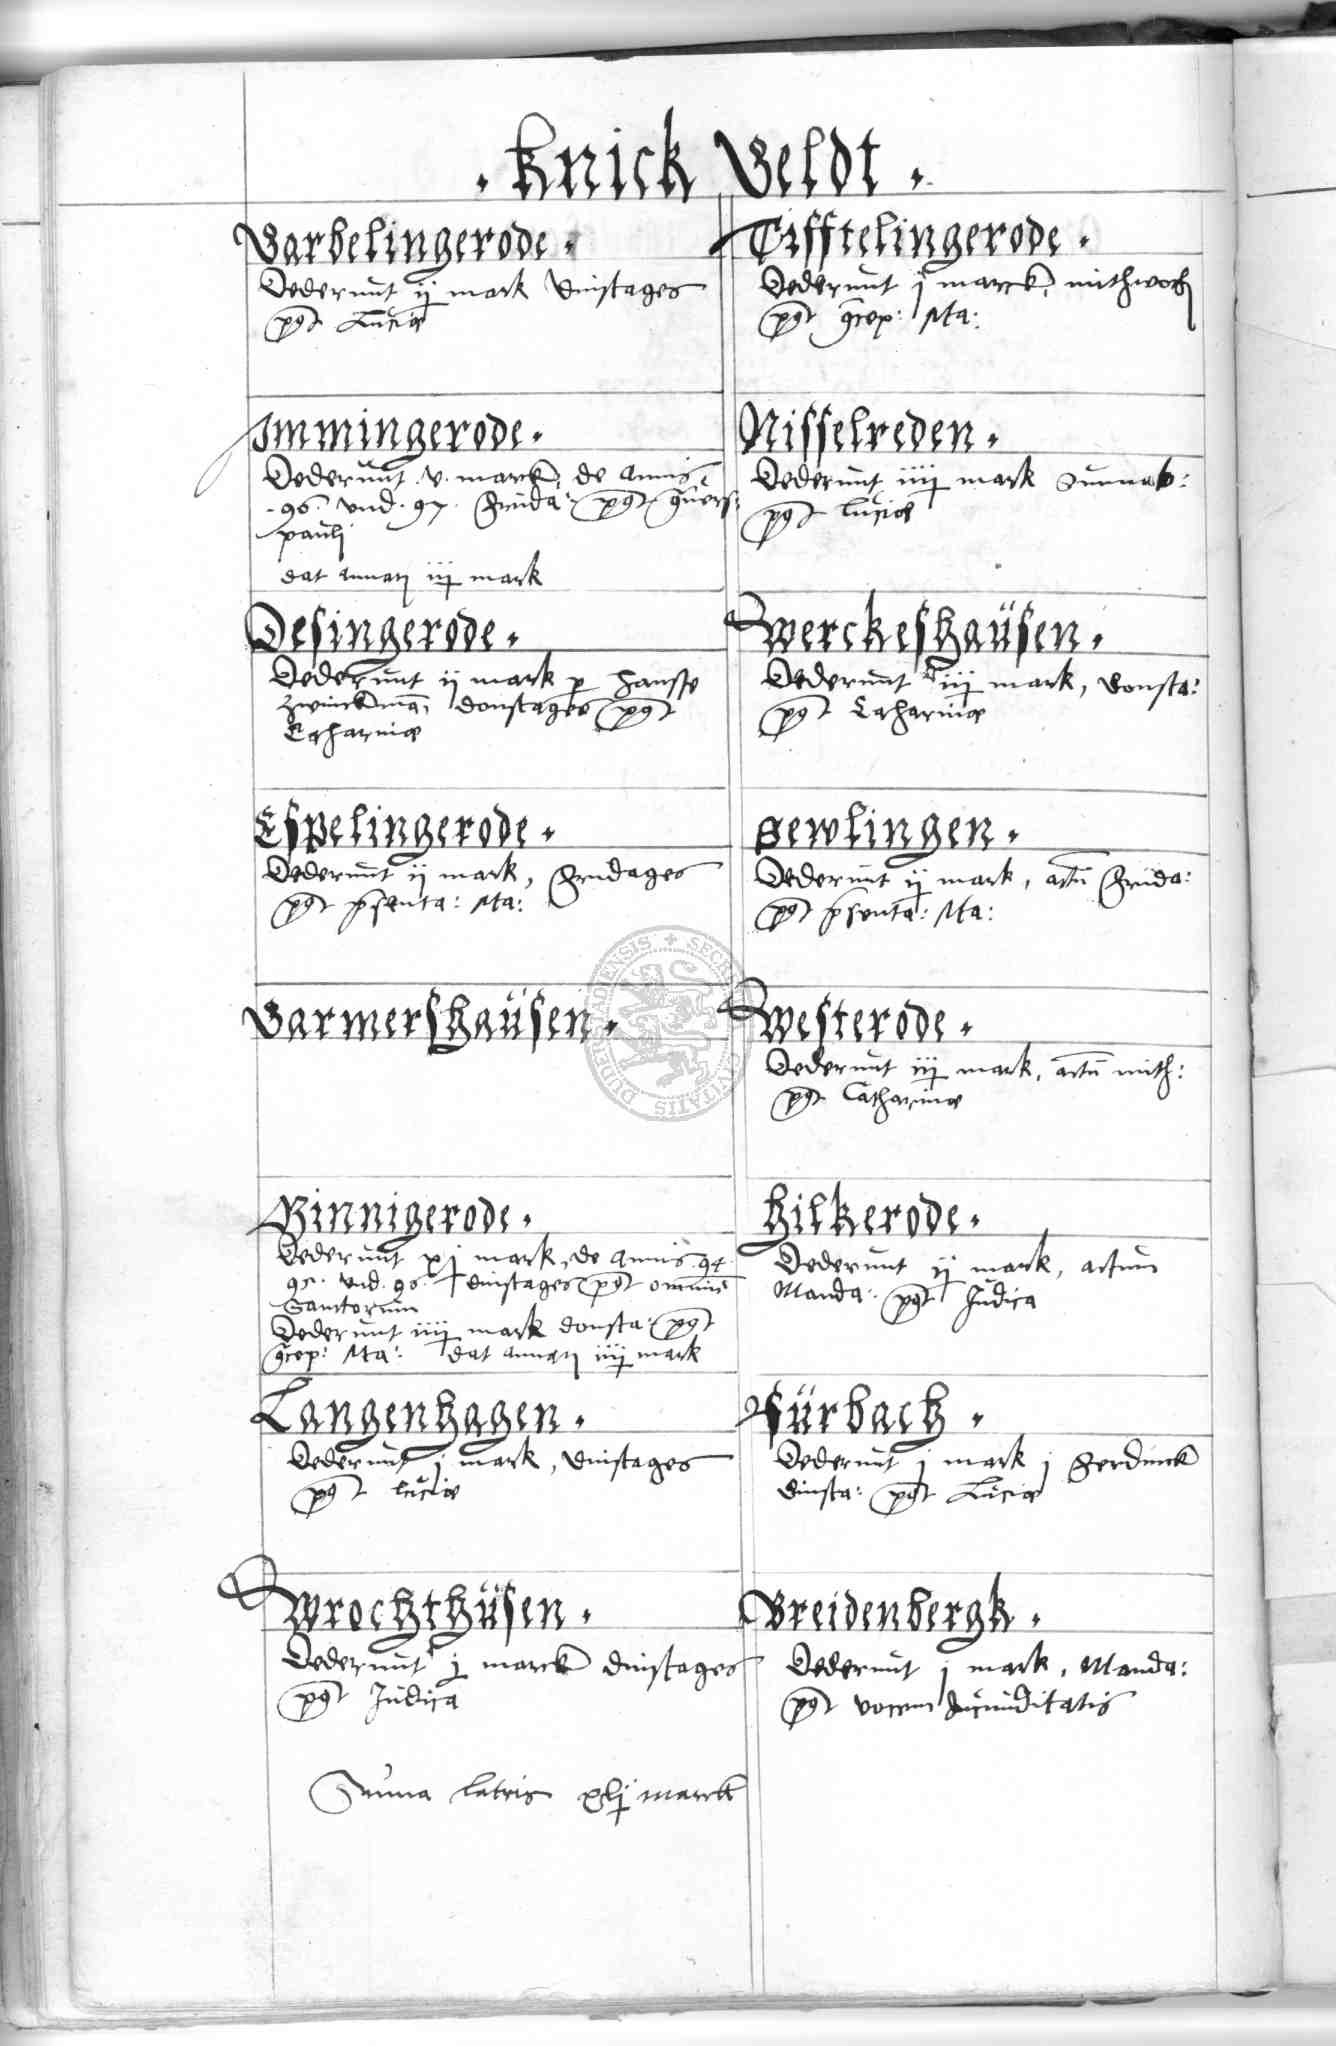 · Knick Veldt ·
Varbelingerode ·
Dederunt ij mark dinstages
pꝰt Lucie
Immingerode ·
Dederunt .v. marck, de Annis
·96· vnd ·97· Frida: pꝰt 9uers:
pauli
dat annatj iij mark
Desingerode ·
Dederunt ij mark p Hansse
Zwinckman, donstages pꝰt
Catharine
Espelingerode ·
Dederunt ij mark, Fridages
pꝰt pñsenta: Ma:
Varmershaüsen ·
Binnigerode ·
Dederunt xj mark, de Annis ·94·
95· vnd ·96· dinstages pꝰt omniũ
Sanctorum
Dederunt iiij mark donsta: pꝰt
9cep: Ma: dat annatj iiij mark
Langenhagen ·
Dederunt j mark, dinstages
pꝰt lucie
Wrochthüsen ·
Dederunt j marck dinstages
pꝰt Judica
Suma latris xlij marck
Tifftelingerode ·
Dederunt j marck, mithwoch
pꝰt 9cep: Ma:
Nisselreden ·
Dederunt iiij mark Sunnab:
pꝰt lucie
Werckeshaüsen ·
Dederunt iiij mark, Donsta:
pꝰt Catharine
Sewlingen ·
Dederunt ij mark, actũ Frida:
pꝰt pñsenta: Ma:
Westerode ·
Dederunt iij mark, actũ mith:
pꝰt Catharine
Hilkerode ·
Dederunt ij mark, actum
Manda: pꝰt Judica
Sürbach ·
Dederunt j mark j Ferdinck
dinsta: pꝰt Lucie
Breidenbergk ·
Dederunt j mark, Manda:
pꝰt vocem Jucunditatis
SECRET CIVITATIS DUDERSTADENSIS